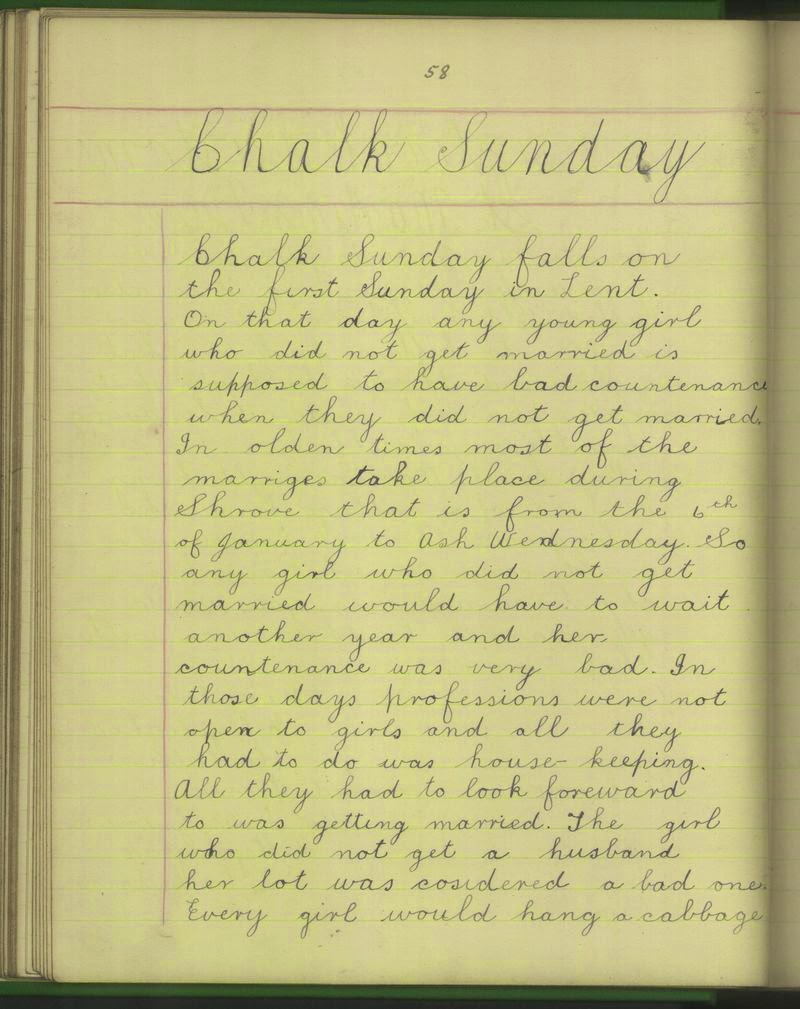 58
Chalk Sunday
Chalk Sunday falls on
the first Sunday in Lent.
On that day any young girl
who did not get married is
supposed to have bad countenance
when they did not get married.
In olden times most of the
marriges take place during
Shrove that is from the 6th
of January to Ash Wednesday. So
any girl who did not get
married would have to wait
another year and her
countenance was very bad. In
those days professions were not
open to girls and all they
had to do was house-keeping.
All they had to look foreward
to was getting married. The girl
who did not get a husband
her lot was cosidered a bad one.
Every girl would hang a cabbage